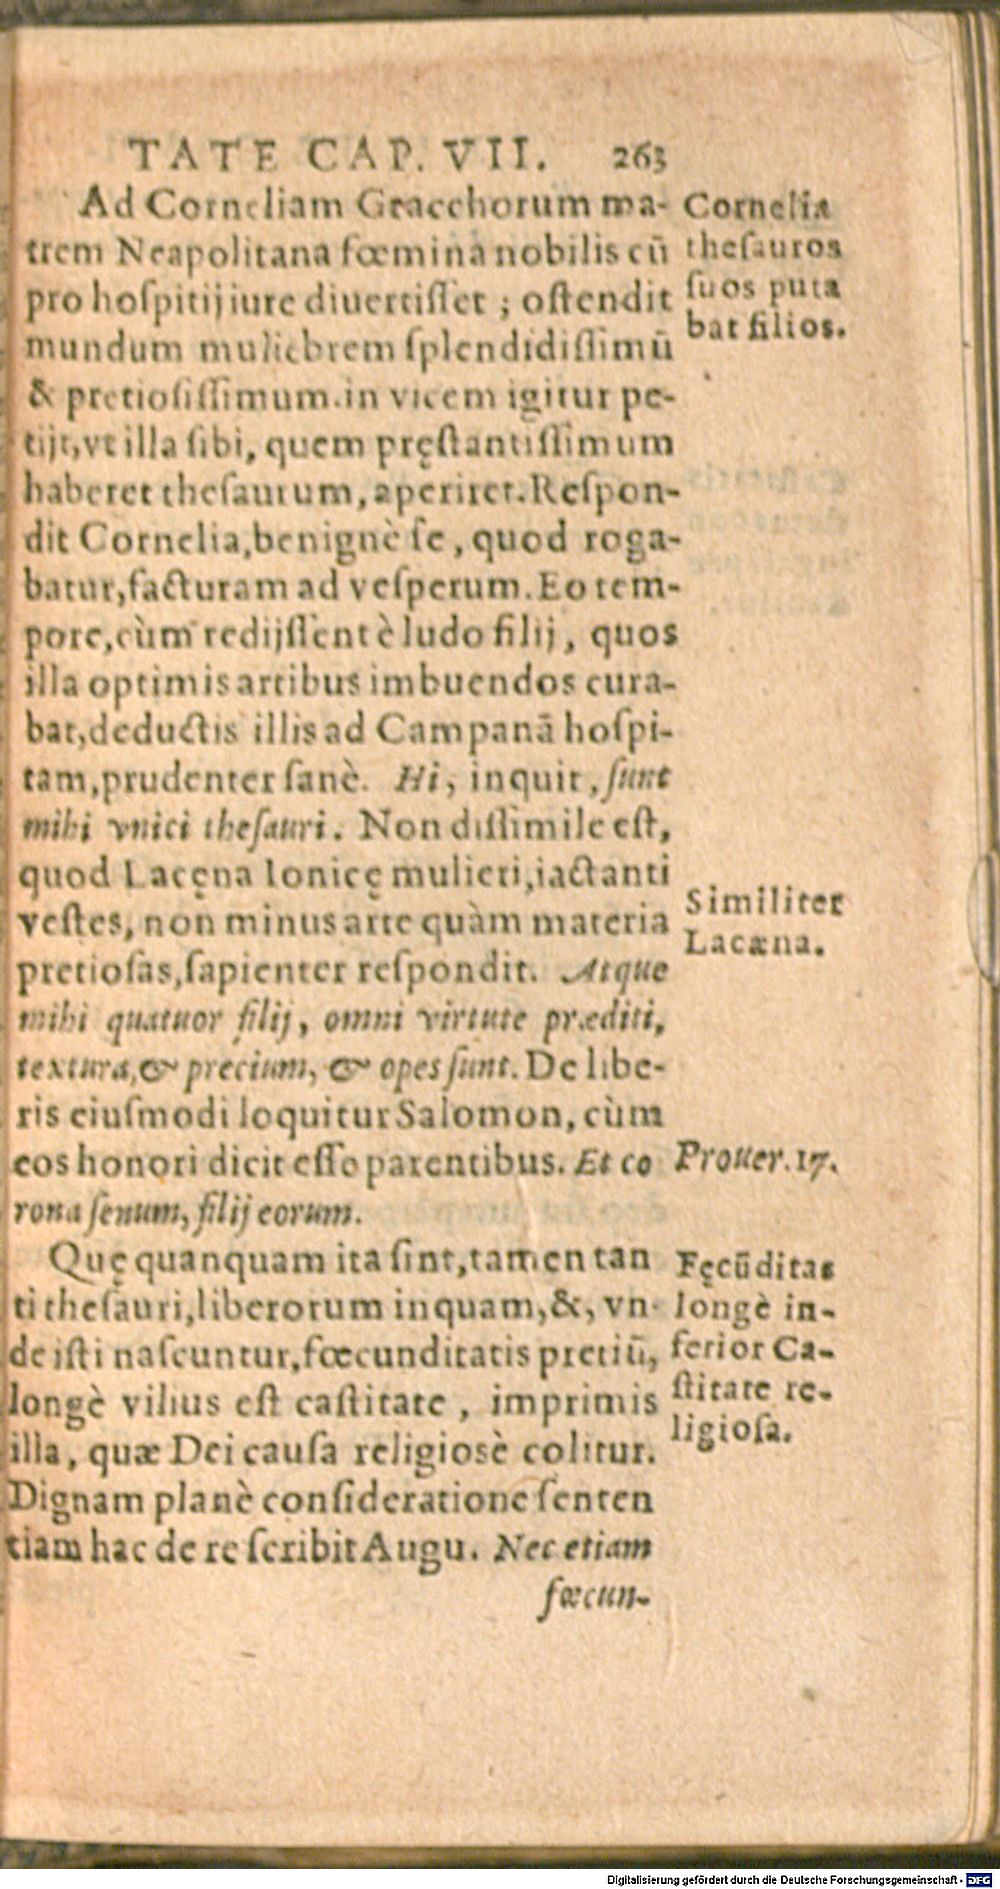 TATE CAP. VII. 263
Ad Corneliam Gracchorum ma-
trem Neapolitana fœmina nobilis cū
pro hoſpitij iure diuertiſſet ; oſtendit
mundum muliebrem ſplendidiſſimū
& pretioſiſſimum. in vicem igitur pe-
tijt, vt illa ſibi, quem pręſtantiſſimum
haberet theſaurum, aperiret. Reſpon-
dit Cornelia, benignè ſe, quod roga-
batur, facturam ad veſperum. Eo tem-
pore, cùm redijſſent è ludo filij, quos
illa optimis artibus imbuendos cura-
bat, deductis illis ad Campanā hoſpi-
tam, prudenter ſanè. Hi, inquit, ſunt
mihi vnici theſauri. Non diſſimile eſt,
quod Lacęna Ionicę mulieri, iactanti
veſtes, non minus arte quàm materia
pretioſas, ſapienter reſpondit. Atque
mihi quatuor filij, omni virtute præditi,
textura, & precium, & opes ſunt. De libe-
ris eiuſmodi loquitur Salomon, cùm
eos honori dicit eſſe parentibus. Et co
rona ſenum, filij eorum.
Quę quanquam ita ſint, tamen tan
ti theſauri, liberorum inquam, &, vn-
de iſti naſcuntur, fœcunditatis pretiū,
longè vilius eſt caſtitate, imprimis
illa, quæ Dei cauſa religiosè colitur.
Dignam planè conſideratione ſenten
tiam hac de re ſcribit Augu. Nec etiam
fœcun-
Cornelia
theſauros
ſuos puta
bat filios.
Similiter
Lacæna.
Prouer. 17.
Fęcūditas
longè in-
ferior Ca-
ſtitate re-
ligioſa.
Digitalisierung gefördert durch die Deutsche Forschungsgemeinschaft - DFG